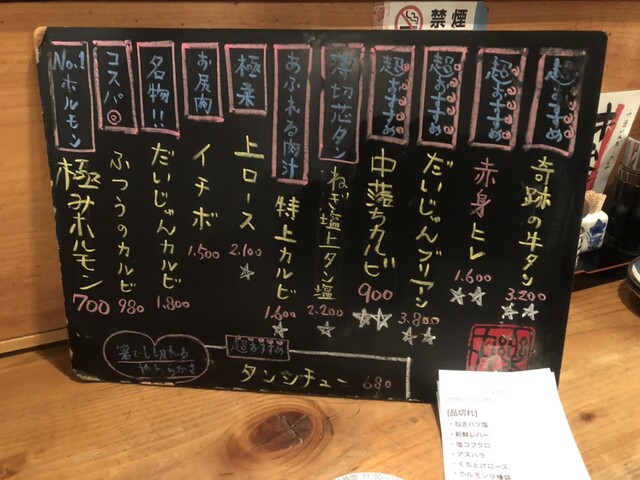 禁煙
超おすすめ
奇跡の牛タン
3.200
超おすすめ
赤身ヒレ
1.600
超おすすめ
だいじゅんブリアン
3.800
超おすすめ
中落ちカルビ
900
薄切芯タン
ねぎ塩上タン塩
2.200
あふれる肉汁
特上カルビ
1.600
極柔
上ロース
2.100
お尻肉
イチボ
1.500
名物!!
だいじゅんカルビ
1.800
コスパ◎
ふつうのカルビ
980
No.1ホルモン
極みホルモン
700
箸でも切れる
やわらかさ
超おすすめ
タンシチュー 680
[品切れ]
・ねぎハツ塩
・新鮮レバー
・塩コブクロ
・アスパラ
・くちどけロース
・ホルモン9種袋